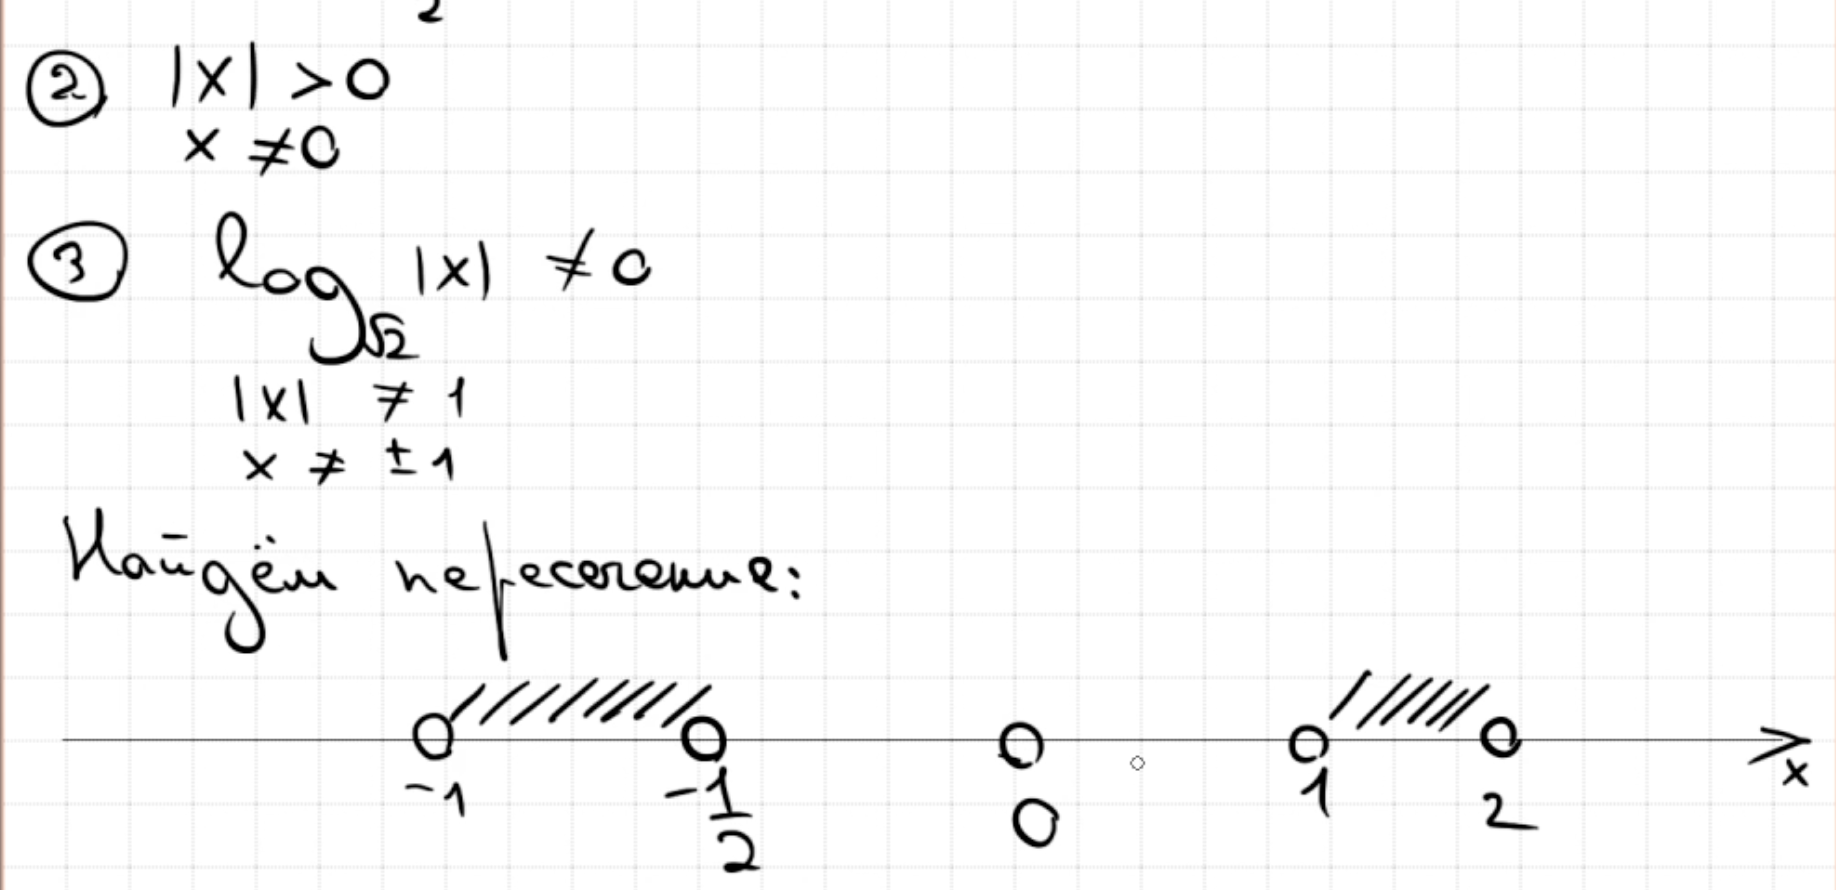 2
② |x| > 0
x ≠ 0
③ log_√2 |x| ≠ 0
|x| ≠ 1
x ≠ ± 1
Найдём пересечение:
-1 -1/2 0 1 2 x